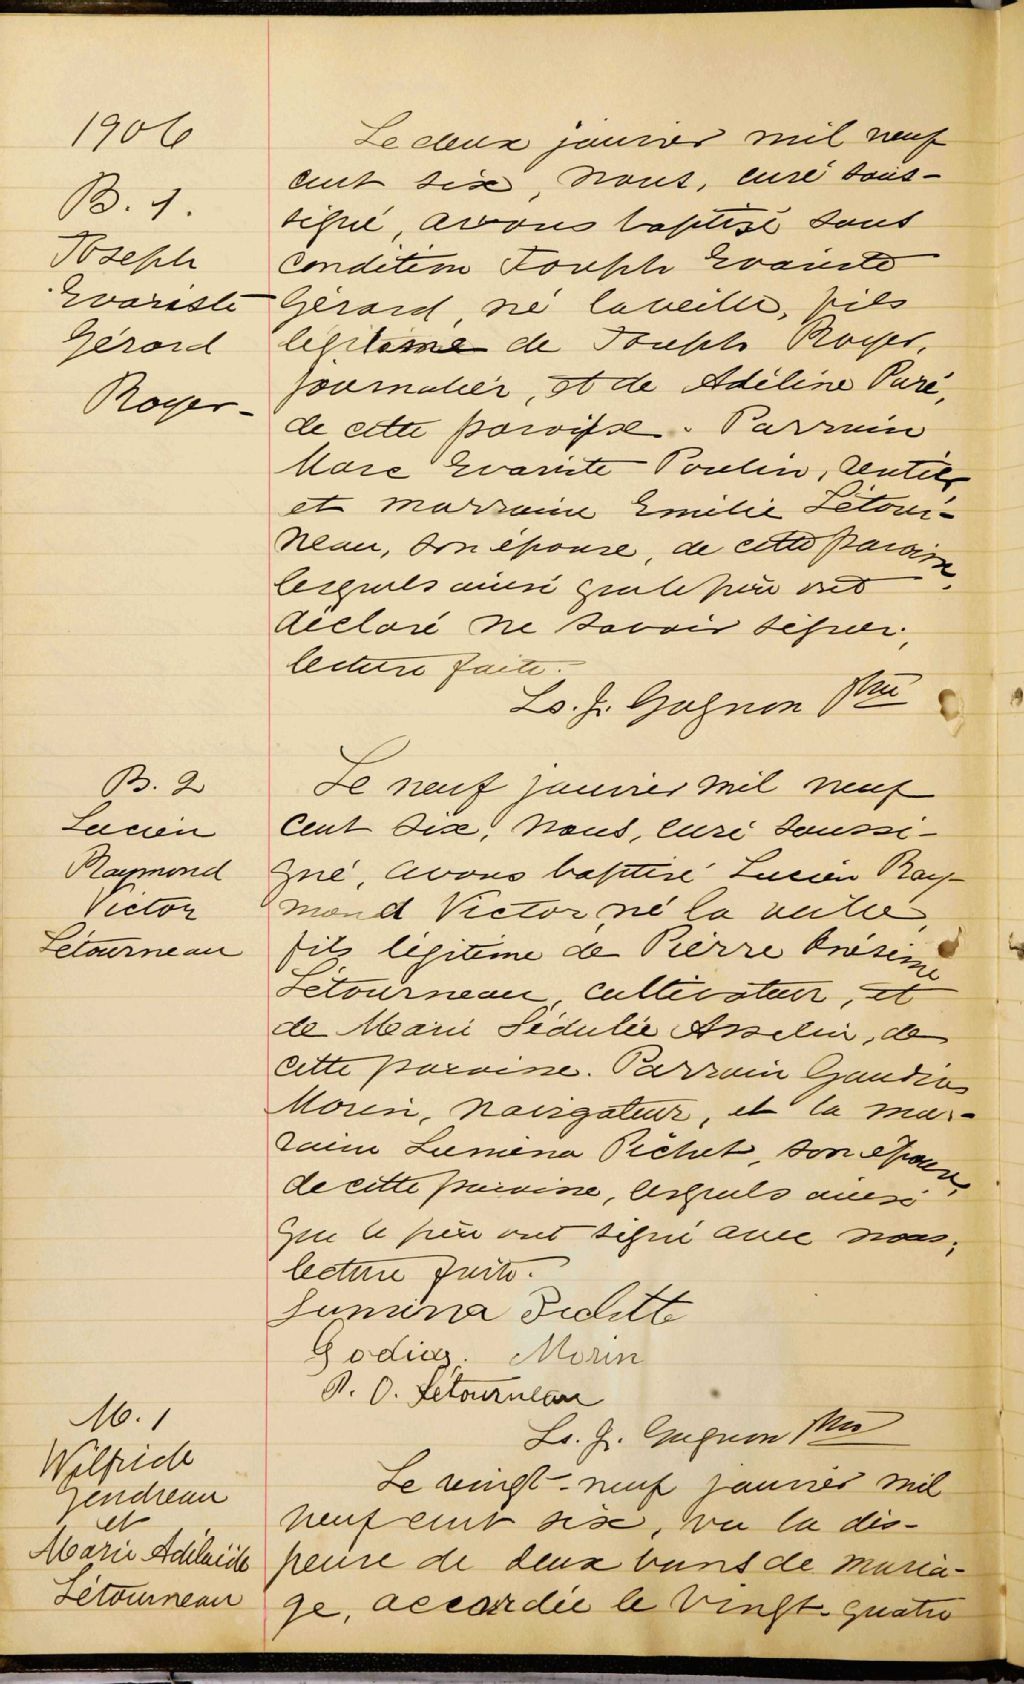 1906
B. 1.
Joseph
Evariste
Gérard
Royer-
Le deux janvier mil neuf
cent six, nous, curé sous-
signé, avons baptisé sous
condition Joseph Evariste
Gérard, né la veille, fils
légitime de Joseph Royer,
journalier, et de Adéline Paré,
de cette paroisse. Parrain
Marc Evariste Poulin, rentier
et marraine Emélie Létour-
neau, son épouse, de cette paroisse,
lesquels ainsi que le père ont
déclaré ne savoir signer;
lecture faite.
Ls. J. Gagnon Ptre
B. 2
Lucien
Raymond
Victor
Létourneau
Le neuf janvier mil neuf
cent six, nous, curé soussi-
gné, avons baptisé Lucien Ray-
mond Victor, né la veille,
fils légitime de Pierre Onésime
Létourneau, cultivateur, et
de Marie Sédulie Asselin, de
cette paroisse. Parrain Gaudias
Morin, navigateur, et la mar-
raine Lumina Pichet, son épouse,
de cette paroisse, lesquels ainsi
que le père ont signé avec nous;
lecture faite.
Lumina Pichette
Godias Morin
P. O. Létourneau
Ls. J. Gagnon Ptre
M. 1
Wilfride
Gendreau
et
Marie Adélaïde
Létourneau
Le vingt-neuf janvier mil
neuf cent six, vu la dis-
pense de deux bans de maria-
ge, accordée le vingt-quatre